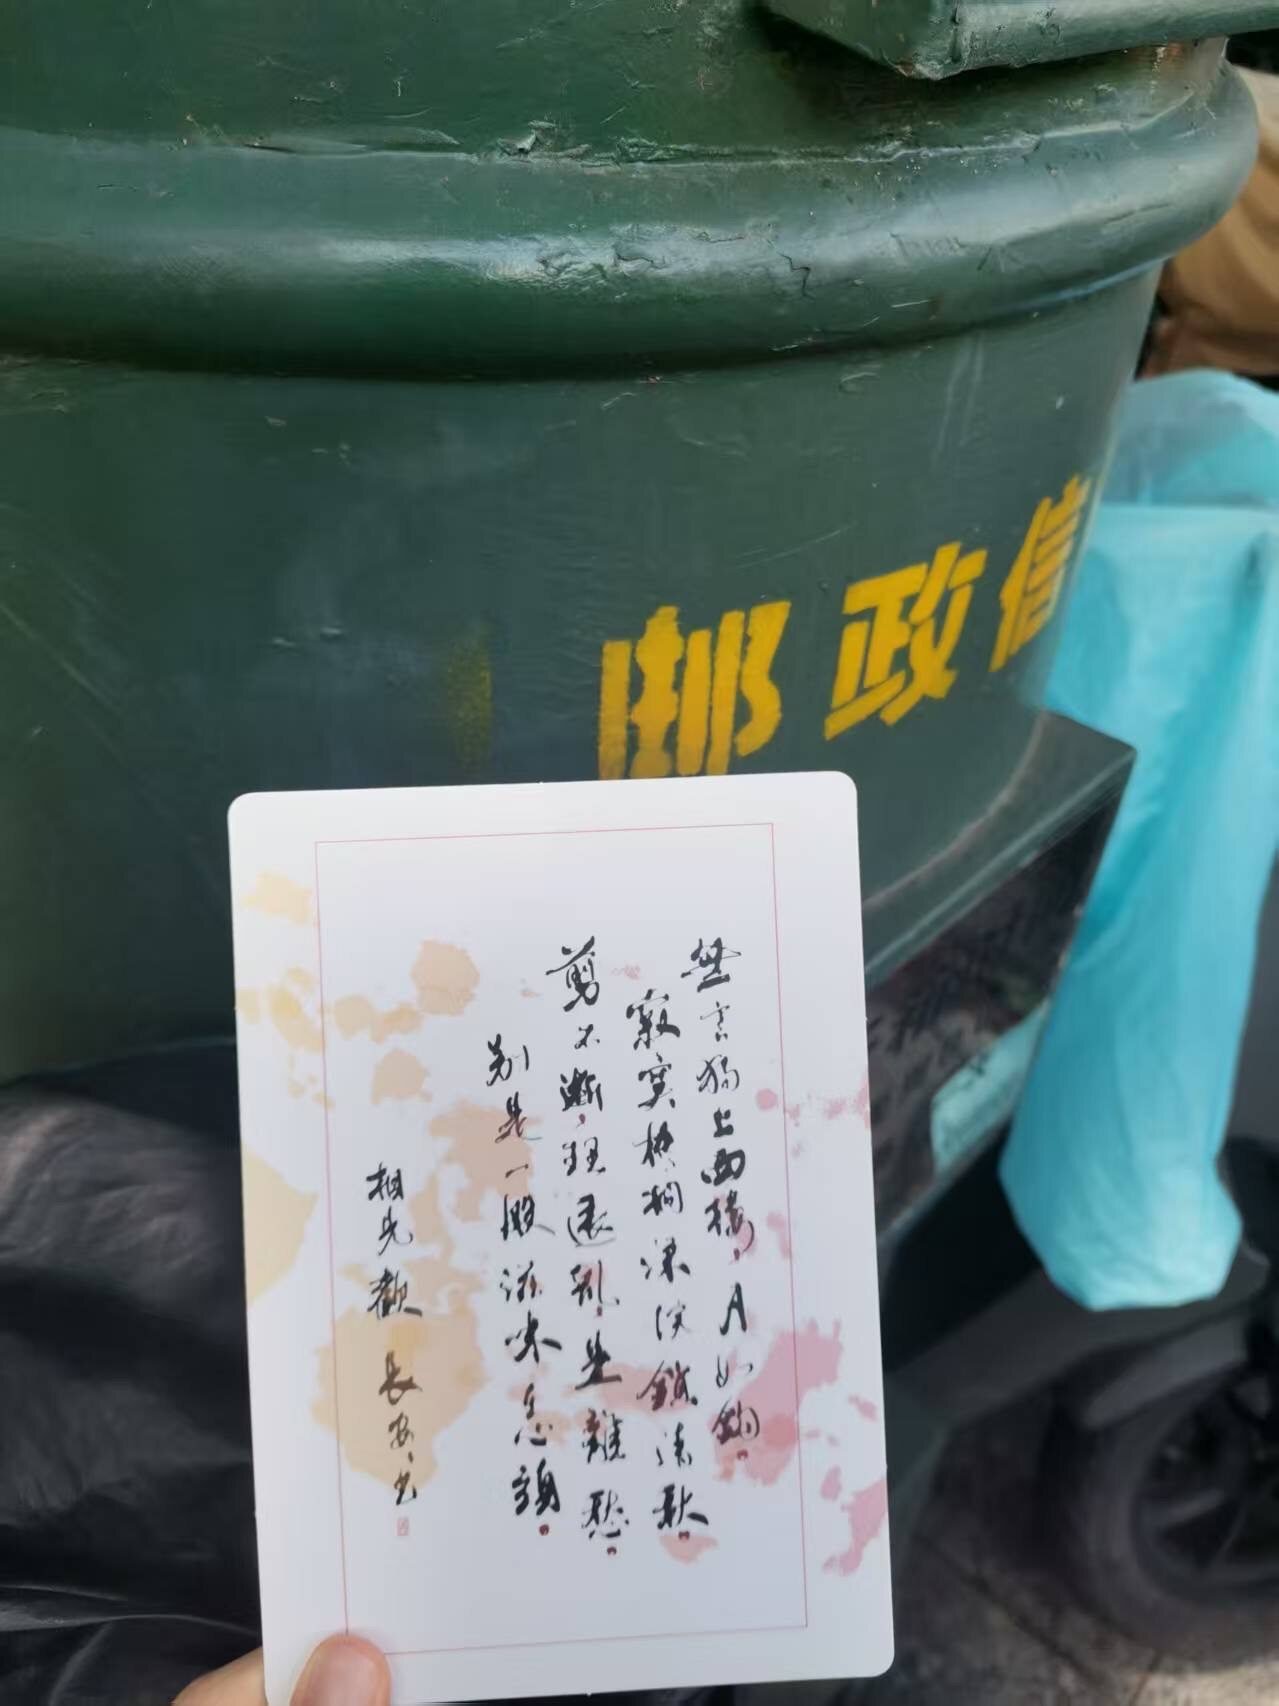 邮政信
無言獨上西樓，月如鉤。
寂寞梧桐深院鎖清秋。
剪不斷，理還亂，是離愁。
别是一般滋味在心頭。
相見歡 長安書